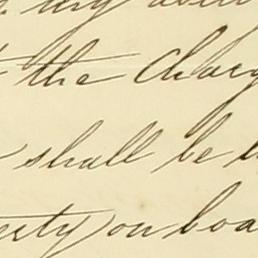 my
the Charg
shall be
erty on boa